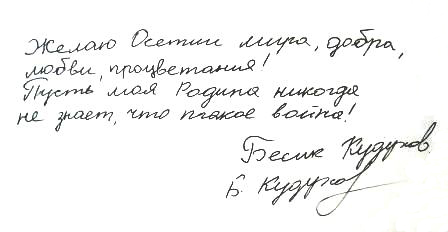 Желаю Осетии мира, добра,
любви, процветания!
Пусть моя Родина никогда
не знает, что такое война!
Бесик Кудухов.
Б. Кудухов